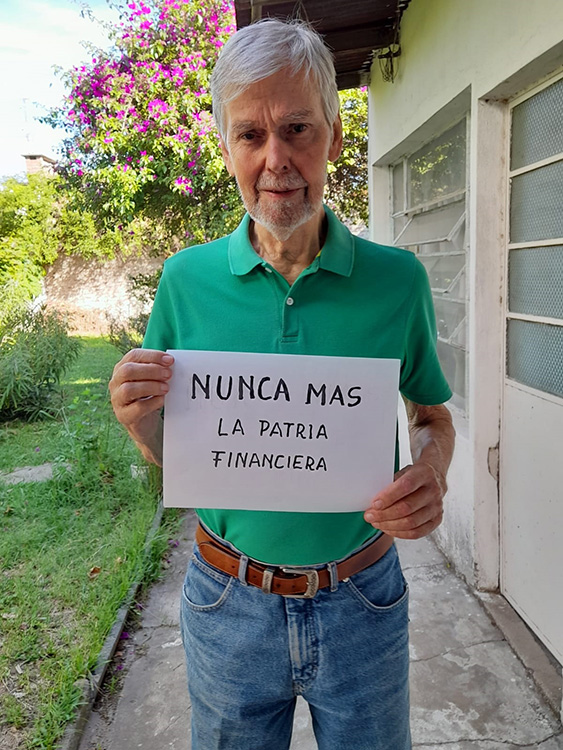 NUNCA MAS
LA PATRIA
FINANCIERA